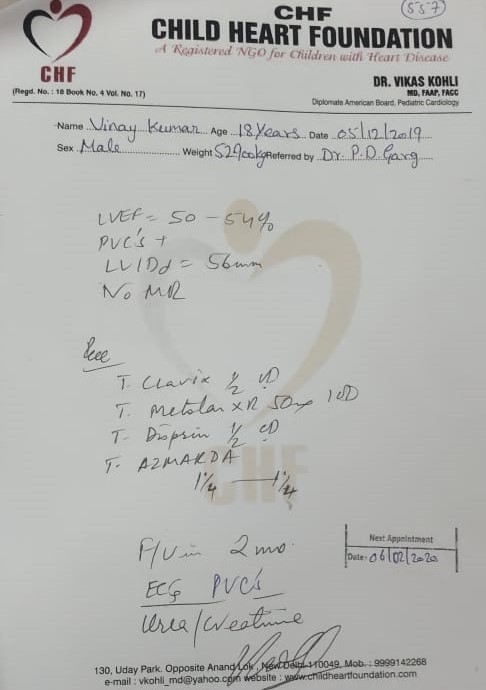 557
CHF
CHILD HEART FOUNDATION
A Registered NGO for Children with Heart Disease
CHF
(Regd. No. : 18 Book No. 4 Vol. No. 17)
DR. VIKAS KOHLI
MD, FAAP, FACC
Diplomate American Board, Pediatric Cardiology
Name Vinay Kumar Age 18 Years Date 05/12/2019
Sex Male Weight 52.900kg Referred by Dr. P.D. Garg
LVEF = 50 - 54%
PVC's +
LVIDd = 56mm
No MR
T. Clavix 1/2 OD
T. Metolar XR 50mg 1 OD
T. Disprin 1/2 OD
T. AZMARDA
1 1/4 — 1 1/4
F/U in 2 mo.
Next Appointment
Date: 06/02/2020
ECG PVC's
Urea/Creatinine
CHF
130, Uday Park. Opposite Anand Lok, New Delhi-110049, Mob. : 9999142268
e-mail : vkohli_md@yahoo.com website : www.childheartfoundation.com